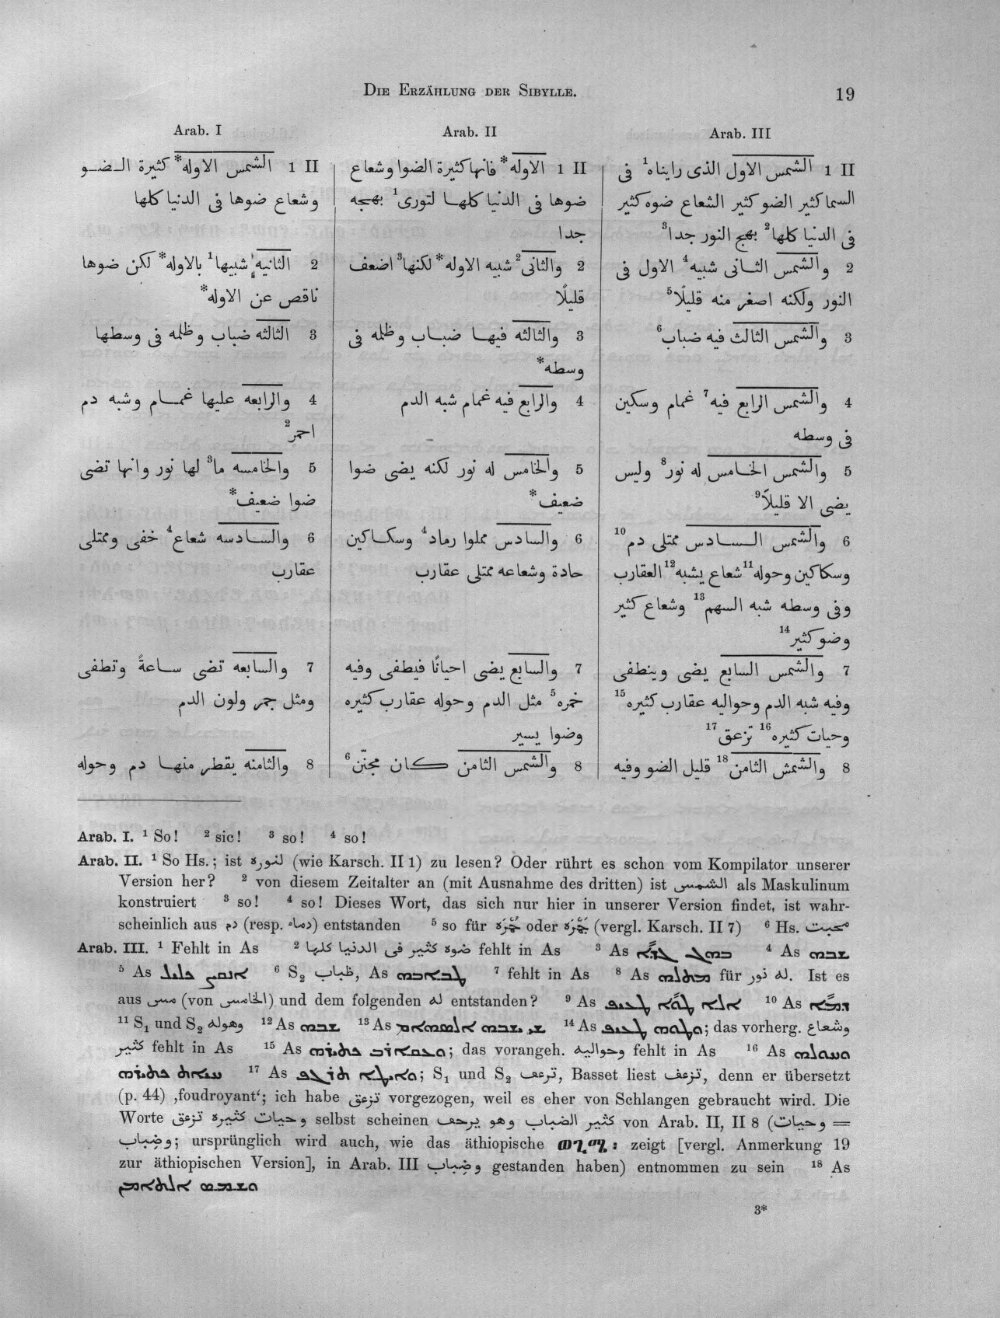 DIE ERZÄHLUNG DER SIBYLLE.
19
Arab. I
II 1 الشمس الاوله* كثيرة الـضـو
وشعاع ضوها فى الدنيا كلها
2 الثانيه شبيها¹ بالاوله* لكن ضوها
ناقص عن الاوله*
3 الثالثه ضباب وظلمه فى وسطها
4 والرابعه عليها غمـــام وشبه دم
احمر²
5 والخامسه ما³ لها نور وانها تضى
ضوا ضعيف*
6 والسـادسه شعاع⁴ خفى وممتلى
عقارب
7 والسابعه تضى ســاعةً وتطفى
ومثل جمر ولون الدم
8 والثامنه يقطر منهـا دم وحوله
Arab. II
II 1 الاوله* فانها كثيرة الضوا وشعاع
ضوها فى الدنيا كلهــا لتورى¹ بهجه
جدا
2 والثانى² شبه الاوله* لكنها³ اضعف
قليلًا
3 والثالثه فيهـا ضبــاب وظلمه فى
وسطه*
4 والرابع فيه غمام شبه الدم
5 والخامس له نور لكنه يضى ضوا
ضعيف*
6 والسادس مملوا رماد⁴ وسكـاكين
حادة وشعاعه ممتلى عقارب
7 والسابع يضى احيانًا فيطفى وفيه
خمره⁵ مثل الدم وحوله عقارب كثيره
وضوا يسير
8 والشمس الثامن كــان مجتن⁶
Arab. III
II 1 الشمس الاول الذى رايناه¹ فى
السما كثير الضو كثير الشعاع ضوه كثير
فى الدنيا كلها² بهج النور جدا³
2 والشمس الثـانى شبيه⁴ الاول فى
النور ولكنه اصغر منه قليلًا⁵
3 والشمس الثالث فيه ضباب⁶
4 والشمس الرابع فيه⁷ غمام وسكين
فى وسطه
5 والشمس الخـامس له نور⁸ وليس
يضى الا قليلًا⁹
6 والشمس الـسـادس ممتلى دم¹⁰
وسكاكين وحوله¹¹ شعاع يشبه¹² العقارب
وفى وسطه شبه السهم¹³ وشعاع كثير
وضو كثير¹⁴
7 والشمس السابع يضى وينطفى
وفيه شبه الدم وحواليه عقارب كثيره¹⁵
وحيات كثيره¹⁶ تزعق¹⁷
8 والشمش الثامن¹⁸ قليل الضو وفيه
Arab. I. ¹ So! ² sic! ³ so! ⁴ so!
Arab. II. ¹ So Hs.; ist لنوره (wie Karsch. II 1) zu lesen? Oder rührt es schon vom Kompilator unserer
Version her? ² von diesem Zeitalter an (mit Ausnahme des dritten) ist الشمس als Maskulinum
konstruiert ³ so! ⁴ so! Dieses Wort, das sich nur hier in unserer Version findet, ist wahr-
scheinlich aus دم (resp. دماء) entstanden ⁵ so für جَمْرَه oder حُمْرَه (vergl. Karsch. II 7) ⁶ Hs.
Arab. III. ¹ Fehlt in As ² ضوه كثير فى الدنيا كلها fehlt in As ³ As ⁴ As
⁵ As ⁶ S₂ ظباب, As ⁷ fehlt in As ⁸ As für له نور. Ist es
aus مس (von الخامس) und dem folgenden له entstanden? ⁹ As ¹⁰ As
¹¹ S₁ und S₂ وهوله ¹² As ¹³ As ¹⁴ As; das vorherg. وشعاع
كثير fehlt in As ¹⁵ As; das vorangeh. وحواليه fehlt in As ¹⁶ As
¹⁷ As; S₁ und S₂ ترعف, Basset liest تزعف, denn er übersetzt
(p. 44) ‚foudroyant‘; ich habe تزعق vorgezogen, weil es eher von Schlangen gebraucht wird. Die
Worte وحيات كثيرة تزعق selbst scheinen كثير الضباب وهو يرجف von Arab. II, II 8 (وحيات =
وضباب; ursprünglich wird auch, wie das äthiopische ወጊሜ፡ zeigt [vergl. Anmerkung 19
zur äthiopischen Version], in Arab. III وضباب gestanden haben) entnommen zu sein ¹⁸ As
3*